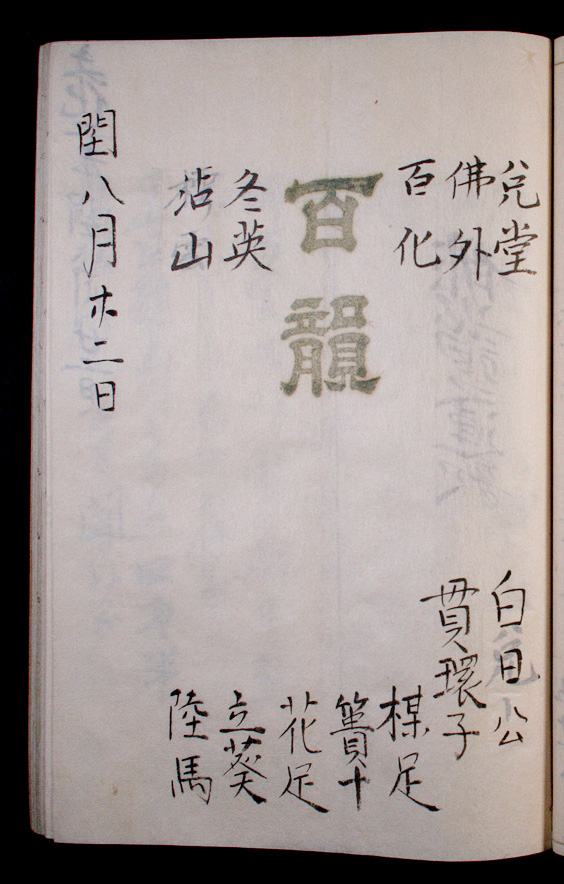 兌堂
佛外
百化
百韻
冬英
沾山
閏八月廿二日
白日公
貫環子
楳足
簣十
花足
立葵
陸馬